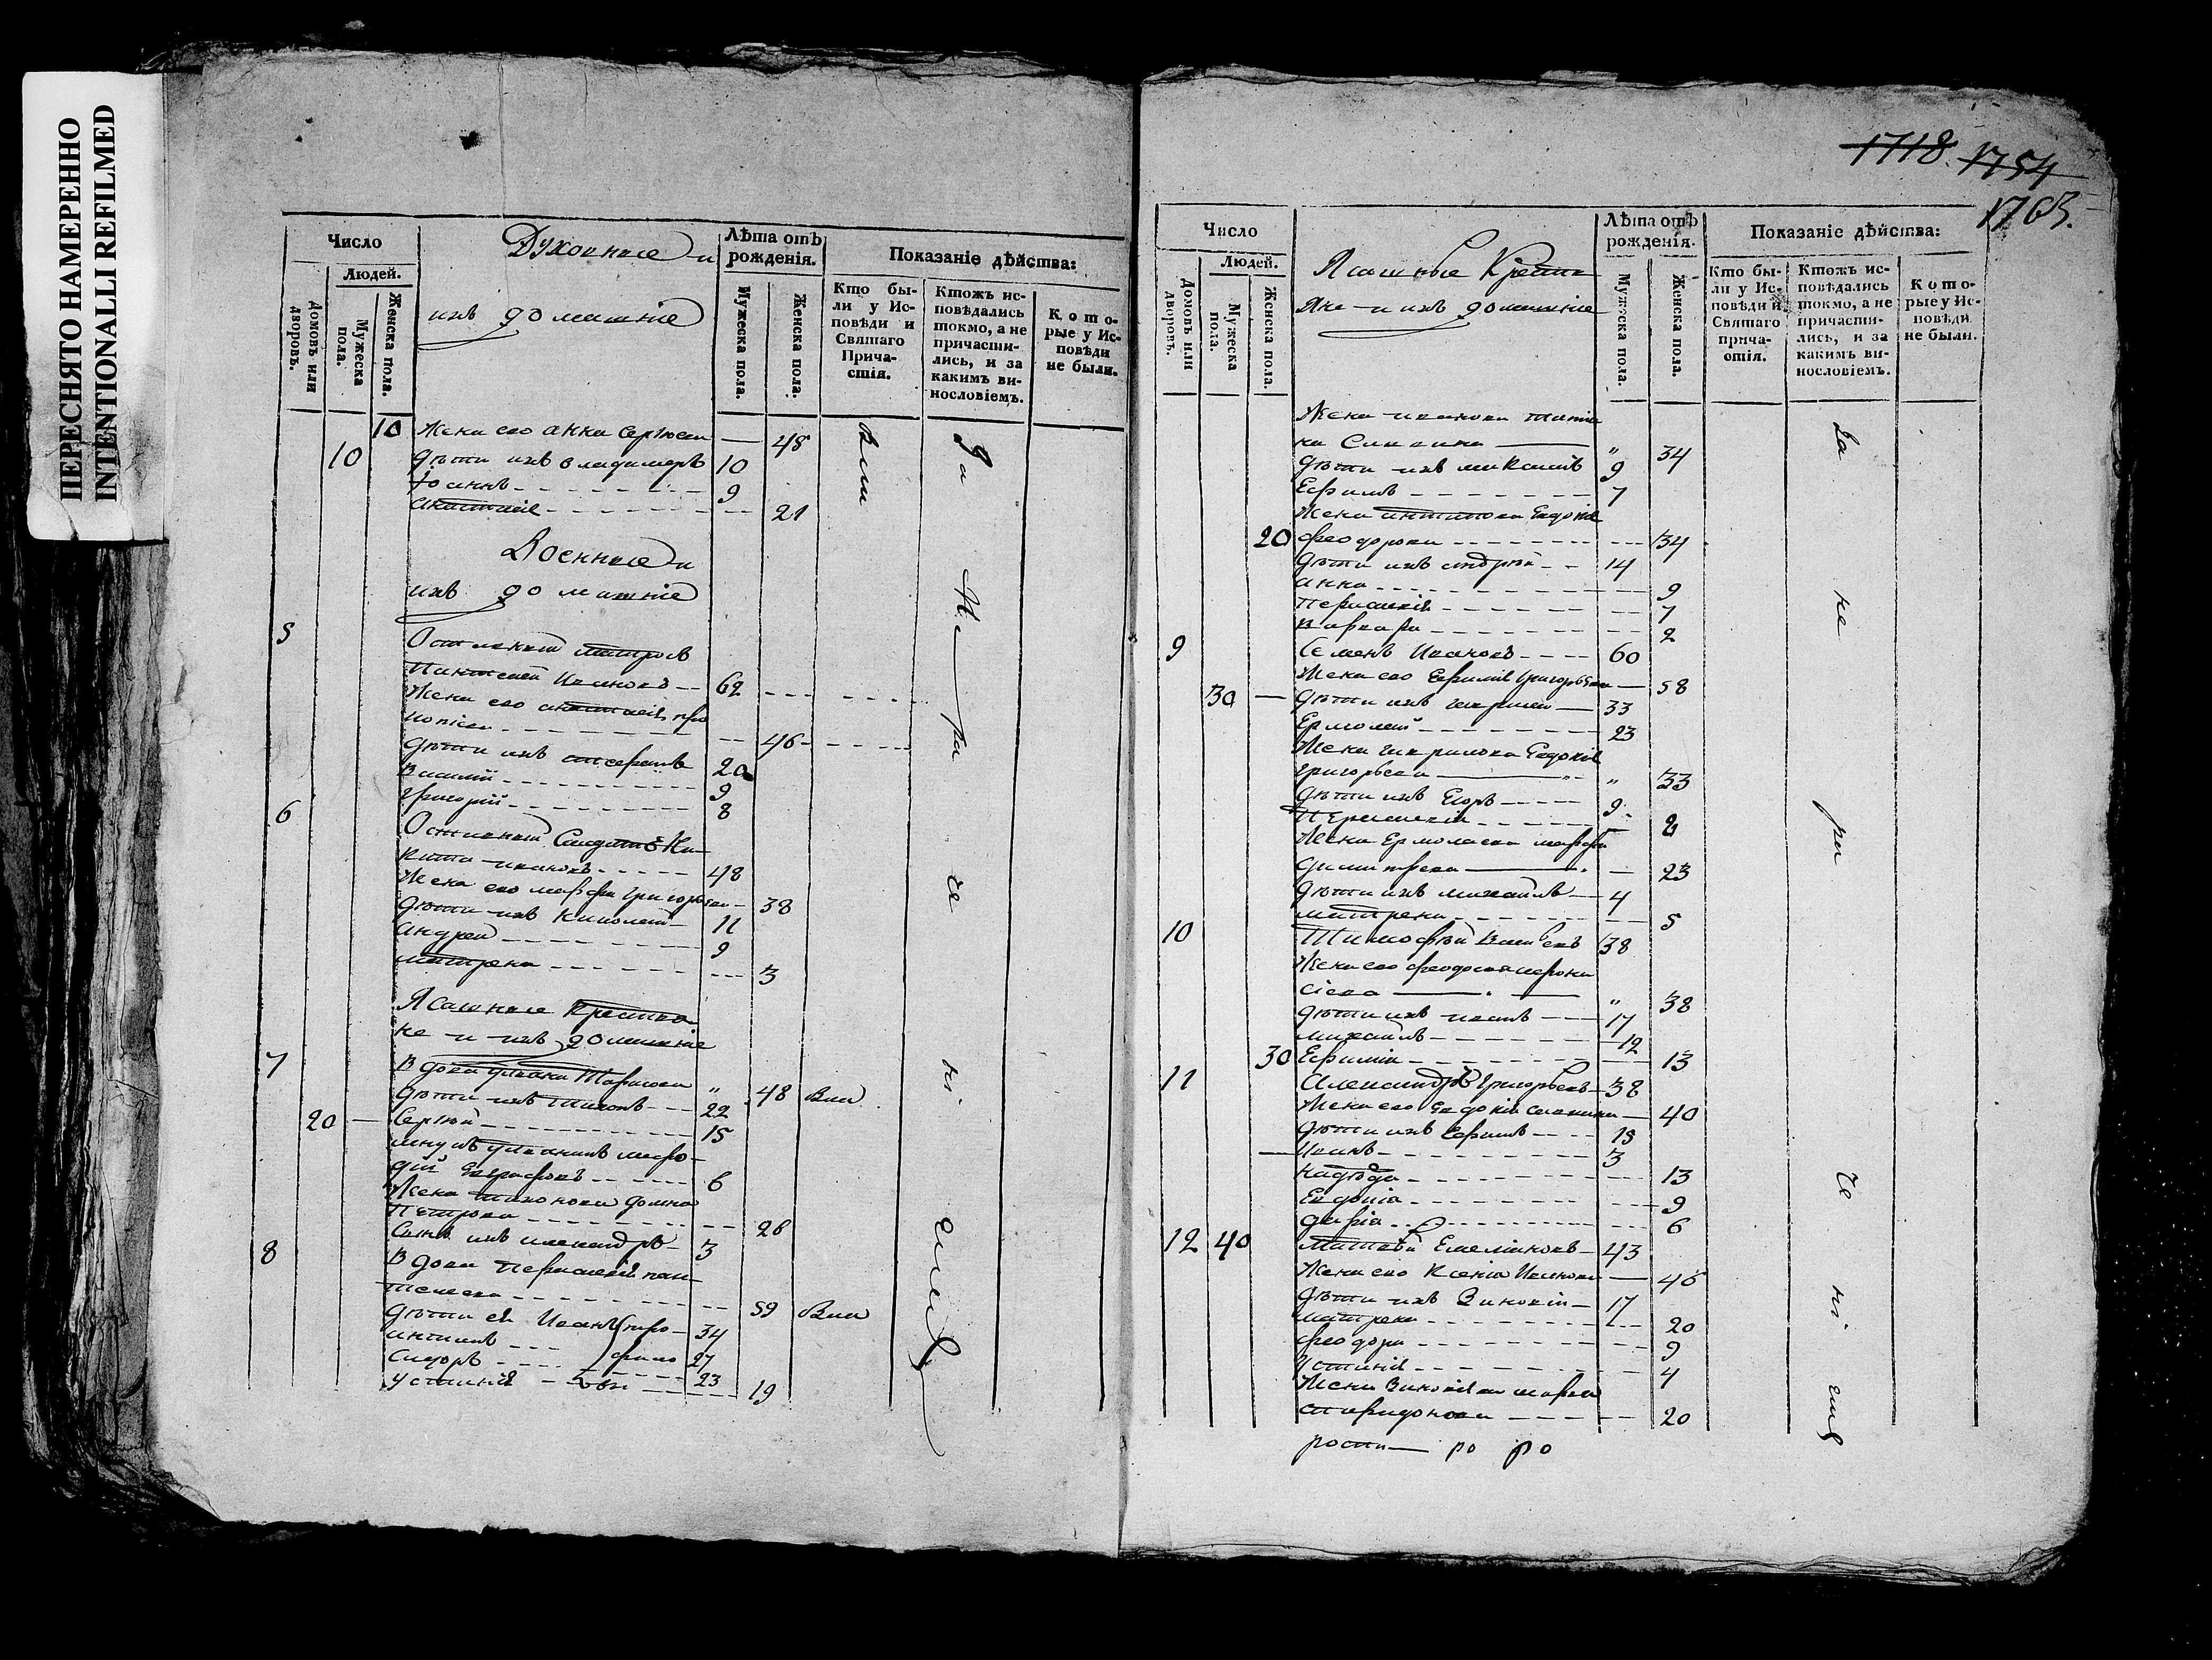 ПЕРЕСНЯТО НАМЕРЕННО
INTENTIONALLI REFILMED
Число
Людей.
Домовъ или дворовъ.
Мужеска пола.
Женска пола.
Духовные и
ихъ домашніе
Лѣта отъ рожденія.
Мужеска пола.
Женска пола.
Показаніе дѣйства:
Кто были у Исповѣди и Святаго Причастія.
Ктожъ исповѣдались токмо, а не причастились, и за какимъ винословіемъ.
Которые у Исповѣди не были.
10 Жена его Анна Сергѣева — 48
10 Дѣти ихъ Владимеръ 10
Іоаннъ 9
Анастасія 21
Военные и
ихъ домашніе
5 Отставной матросъ
Пантелей Ивановъ 62
Жена его Анастасія Про
копіева 46
Дѣти ихъ 20
Василій 9
Григорій 8
6 Отставной Солдатъ Ни-
кита Ивановъ 48
Жена его Марфа Григорьева 38
Дѣти ихъ 11
Андрей 9
Матрена 3
Ясашные Крестья
не и ихъ домашніе
7 Вдова Ульяна Тарасова " 48 Были
Дѣти ихъ Тихонъ 22
20 — Сергѣй 15
Внукъ Ульянинъ Мефо-
дій Евграфовъ 6
Жена Тихонова Домна
Петрова 26
Сынъ ихъ Александръ 3
8 Вдова Параскевія Пан-
телеева 59 Были
Дѣти ея Иванъ 34
Антипъ 27
Сидоръ 23
Устинія 19
Были
За не ра че ні емъ
1718 1754
1763.
Число
Людей.
Домовъ или дворовъ.
Мужеска пола.
Женска пола.
Ясашные Крестья
яне и ихъ домашніе
Лѣта отъ рожденія.
Мужеска пола.
Женска пола.
Показаніе дѣйства:
Кто были у Исповѣди и Святаго причастія.
Ктожъ исповѣдались токмо, а не причастились, и за какимъ винословіемъ.
Которые у Исповѣди не были.
Жена Иванова Татья
на Савина " 34
Дѣти ихъ Максимъ 9
Ефимъ 7
Жена Антипова Евдокія
20 Феодорова 34
Дѣти ихъ Андрей 14
Анна 9
Параскевія 7
Варвара 2
9 Семенъ Ивановъ 60
Жена его Ефимія Григорьева — 58
30 — Дѣти ихъ Гаврила — 33
Ермолай 23
Жена Гаврилова Евдокія
Григорьева " 33
Дѣти ихъ Егоръ 9
Параскевія 2
Жена Ермолаева Марфа
Димитрева — 23
Дѣти ихъ Михаилъ — 4
Матрена 5
10 Тимофѣй Васильевъ 38
Жена его Феодосія Аѳона
сіева " 38
Дѣти ихъ Иванъ 17
Михаилъ 12
30 Ефимія 13
11 Александръ Григорьевъ 38
Жена его Евдокія — 40
Дѣти ихъ Ефимъ 15
— Иванъ 3
Надежда 13
Евдокія 9
Дарія 6
12 40 Матвѣй Емеліановъ 43
Жена его Ксенія Иванова — 46
Дѣти ихъ Зиновій 17
Матрена 20
Феодора 9
Устинія 4
Жена Зиновіева Марѳа
Спиридонова 20
За не ра че ні емъ